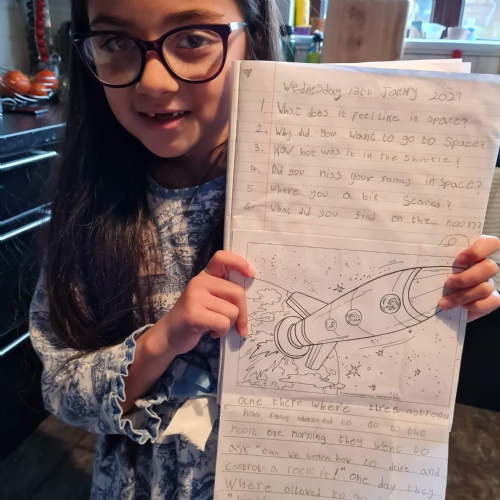 Wednesday 13th Jounry 2021
1. What does it feel like in space?
2. Why did you want to go to Space?
3. How hot was it in the shuttle?
4. Did you miss your family in space?
5. Where you a bit Scared?
6. What did you find on the moon?
One there where three
had wanted to go to the
moon one morning they went to
ask "can we learn how to drive and
control a rock it!" one day they
Where allowed to go